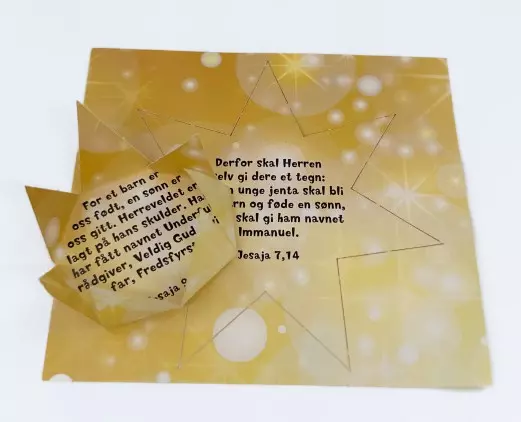 For et barn er
oss født, en sønn er
oss gitt. Herreveldet er
lagt på hans skulder. Han
har fått navnet Underfu
rådgiver, Veldig Gud
far, Fredsfyrs
Jesaja 9
Derfor skal Herren
elv gi dere et tegn:
n unge jenta skal bli
arn og føde en sønn,
skal gi ham navnet
Immanuel.
Jesaja 7,14